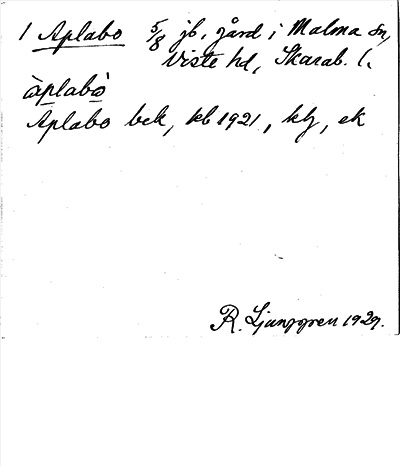 1 Aplabo 5/8 jb, gård i Malma sn,
Viste hd, Skarab. l.
àplabò
Aplabo bek, kb 1921, kly, ek
R. Ljunggren 1929.